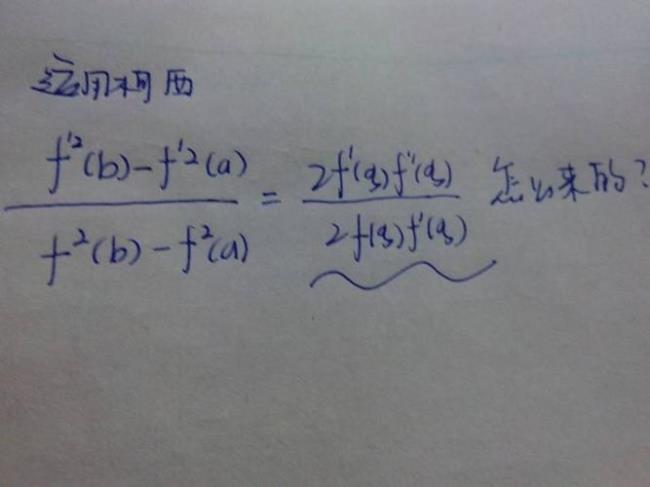 运用柯西
f'²(b)-f'²(a) / f²(b)-f²(a) = 2f'(ξ)f'(ξ) / 2f(ξ)f'(ξ) 怎么来的?